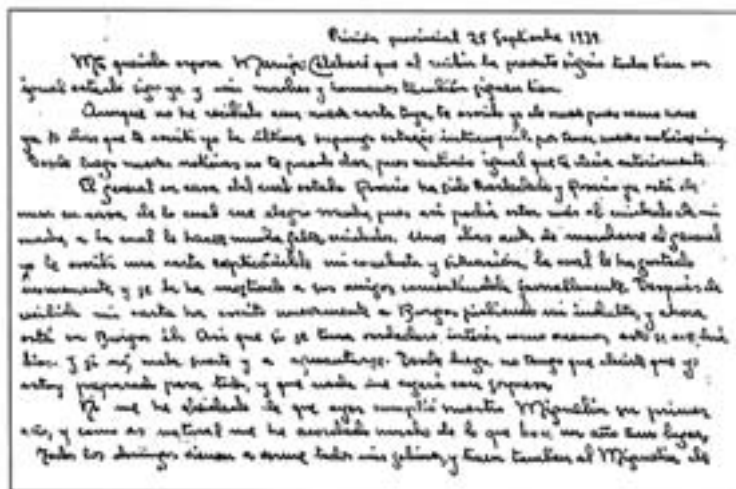 Prisión provincial 25 Septiembre 1939
Mi querida esposa Maruja: Celebraré que al recibir la presente sigais todos bien en
igual estado sigo yo y mi madre y hermanos también siguen bien.
Aunque no he recibido aun nueva carta tuya, te escribo yo de nuevo pues como hace
ya 10 dias que te escribí yo la última, supongo estarás intranquila por tener nuevas noticias
Desde luego nuevas noticias no te puedo dar, pues continúo igual que te decia anteriormente.
El general en casa del cual estaba Rosario ha sido trasladado y Rosario ya está de
nuevo en casa, de lo cual me alegro mucho, pues asi podrá estar más al cuidado de mi
madre, a la cual le hacen mucha falta cuidados. Unos dias antes de marcharse el general
yo le escribí una carta explicándole mi conducta y situación, la cual le ha gustado
y se la ha mostrado a sus amigos comentándola favorablemente. Después de
recibida mi carta ha escrito nuevamente a Burgos pidiendo mi indulto, y ahora
está en Burgos él. Asi que si se toma verdadero interés, como
Y si nó, mala suerte y a aguantarse. Desde luego no tengo que decirte que yo
estoy preparado para todo, y que nada me cogerá con sorpresa.
No me he olvidado de que ayer cumplió nuestro Miguelin su primer
año, y como es natural me he acordado mucho de lo que hace un año tuvo lugar.
Todos los domingos vienen a verme todos mis y traen tambien al Miguelin de